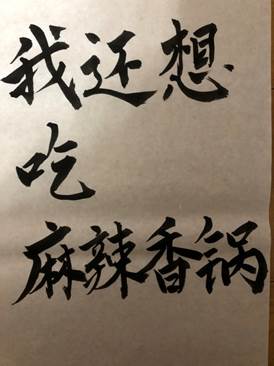 我还想
吃
麻辣香锅